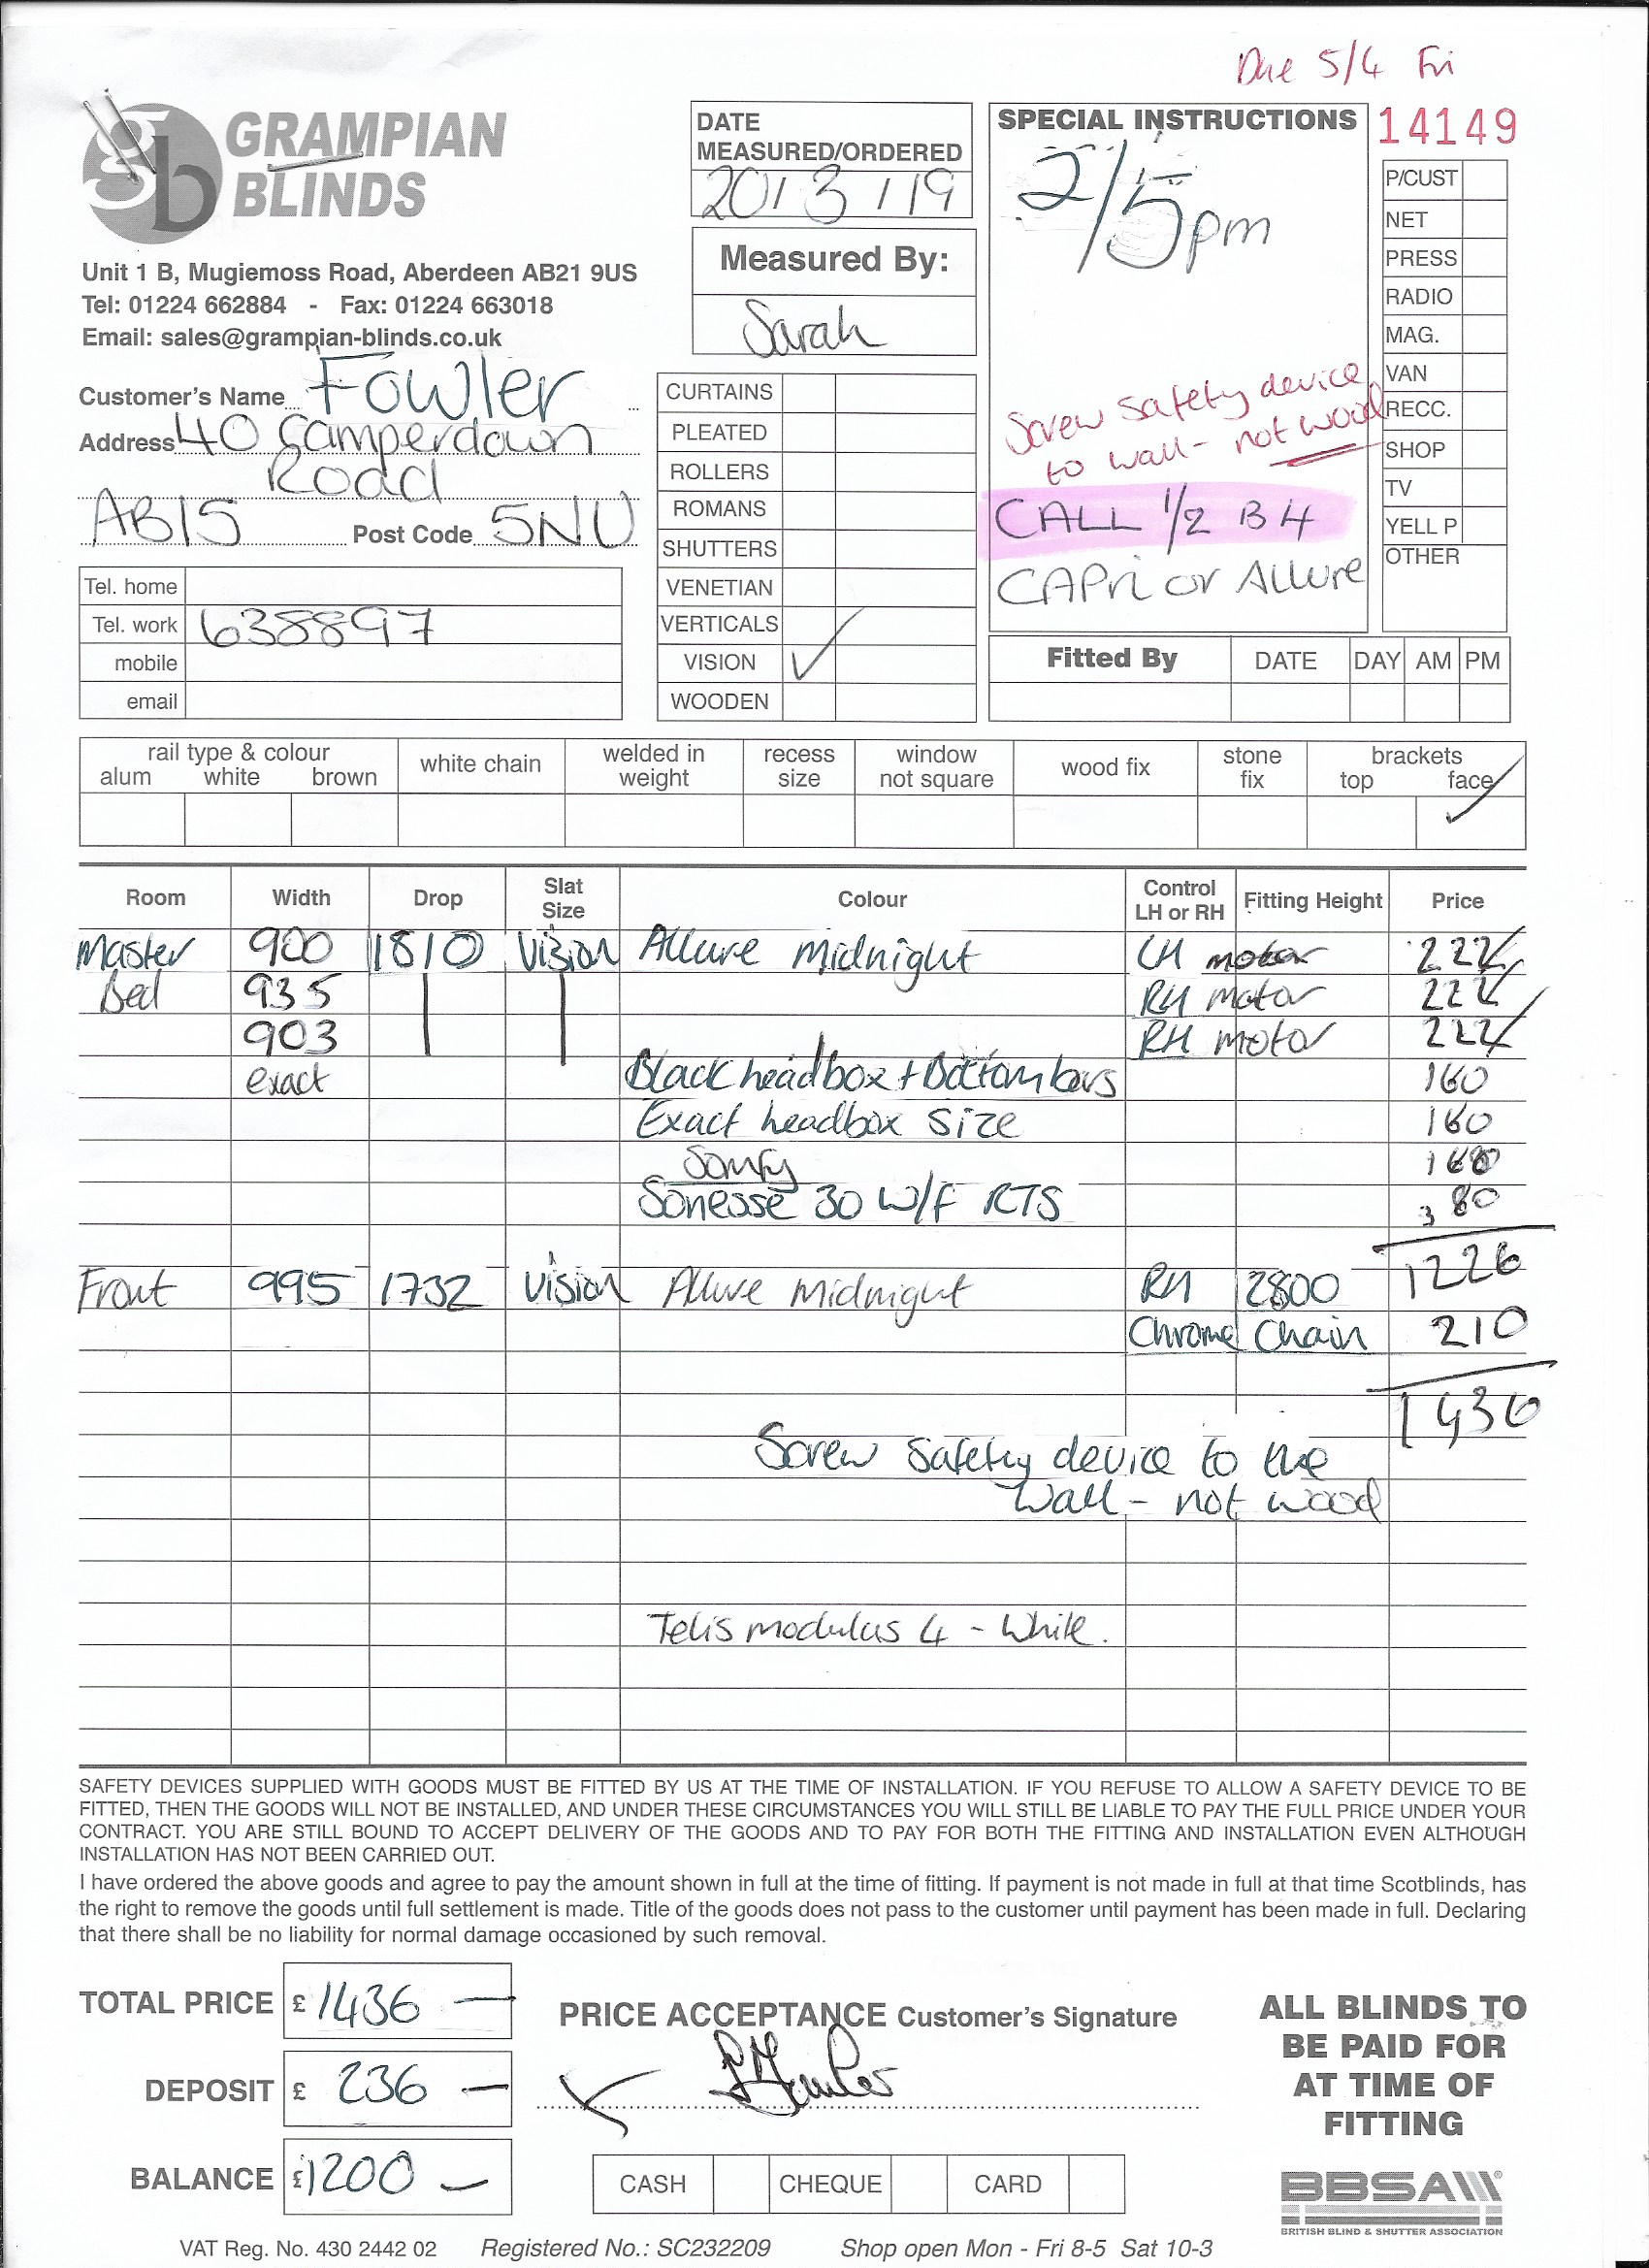 Due 5/4 Fri
gb GRAMPIAN
BLINDS
Unit 1 B, Mugiemoss Road, Aberdeen AB21 9US
Tel: 01224 662884 - Fax: 01224 663018
Email: sales@grampian-blinds.co.uk
Customer's Name Fowler
Address 40 Camperdown
Road
AB15 Post Code 5NU
Tel. home
Tel. work 638897
mobile
email
DATE
MEASURED/ORDERED
20/3/19
Measured By:
Sarah
CURTAINS
PLEATED
ROLLERS
ROMANS
SHUTTERS
VENETIAN
VERTICALS
VISION ✓
WOODEN
SPECIAL INSTRUCTIONS
2/5 pm
Screw safety device
to wall - not wood
CALL 1/2 B4
CAPri or Allure
14149
P/CUST
NET
PRESS
RADIO
MAG.
VAN
RECC.
SHOP
TV
YELL P
OTHER
Fitted By DATE DAY AM PM
rail type & colour white chain welded in weight recess size window not square wood fix stone fix brackets
alum white brown top face ✓
Room Width Drop Slat Size Colour Control LH or RH Fitting Height Price
Master 900 1810 Vision Allure Midnight LH motor 222
Bed 935 RH motor 222
903 RH motor 222
exact Black headbox + Bottom bars 160
Exact headbox size 160
Somfy
Sonesse 30 W/F RTS 80
1226
Front 995 1732 Vision Allure Midnight RH 2800
Chrome Chain 210
1436
Screw safety device to the
wall - not wood
Telis modulus 4 - White.
SAFETY DEVICES SUPPLIED WITH GOODS MUST BE FITTED BY US AT THE TIME OF INSTALLATION. IF YOU REFUSE TO ALLOW A SAFETY DEVICE TO BE
FITTED, THEN THE GOODS WILL NOT BE INSTALLED, AND UNDER THESE CIRCUMSTANCES YOU WILL STILL BE LIABLE TO PAY THE FULL PRICE UNDER YOUR
CONTRACT. YOU ARE STILL BOUND TO ACCEPT DELIVERY OF THE GOODS AND TO PAY FOR BOTH THE FITTING AND INSTALLATION EVEN ALTHOUGH
INSTALLATION HAS NOT BEEN CARRIED OUT.
I have ordered the above goods and agree to pay the amount shown in full at the time of fitting. If payment is not made in full at that time Scotblinds, has
the right to remove the goods until full settlement is made. Title of the goods does not pass to the customer until payment has been made in full. Declaring
that there shall be no liability for normal damage occasioned by such removal.
TOTAL PRICE £ 1436 —
DEPOSIT £ 236 —
BALANCE £ 1200 —
PRICE ACCEPTANCE Customer's Signature
✓
CASH CHEQUE CARD
ALL BLINDS TO
BE PAID FOR
AT TIME OF
FITTING
BBSA
BRITISH BLIND & SHUTTER ASSOCIATION
VAT Reg. No. 430 2442 02 Registered No.: SC232209 Shop open Mon - Fri 8-5 Sat 10-3